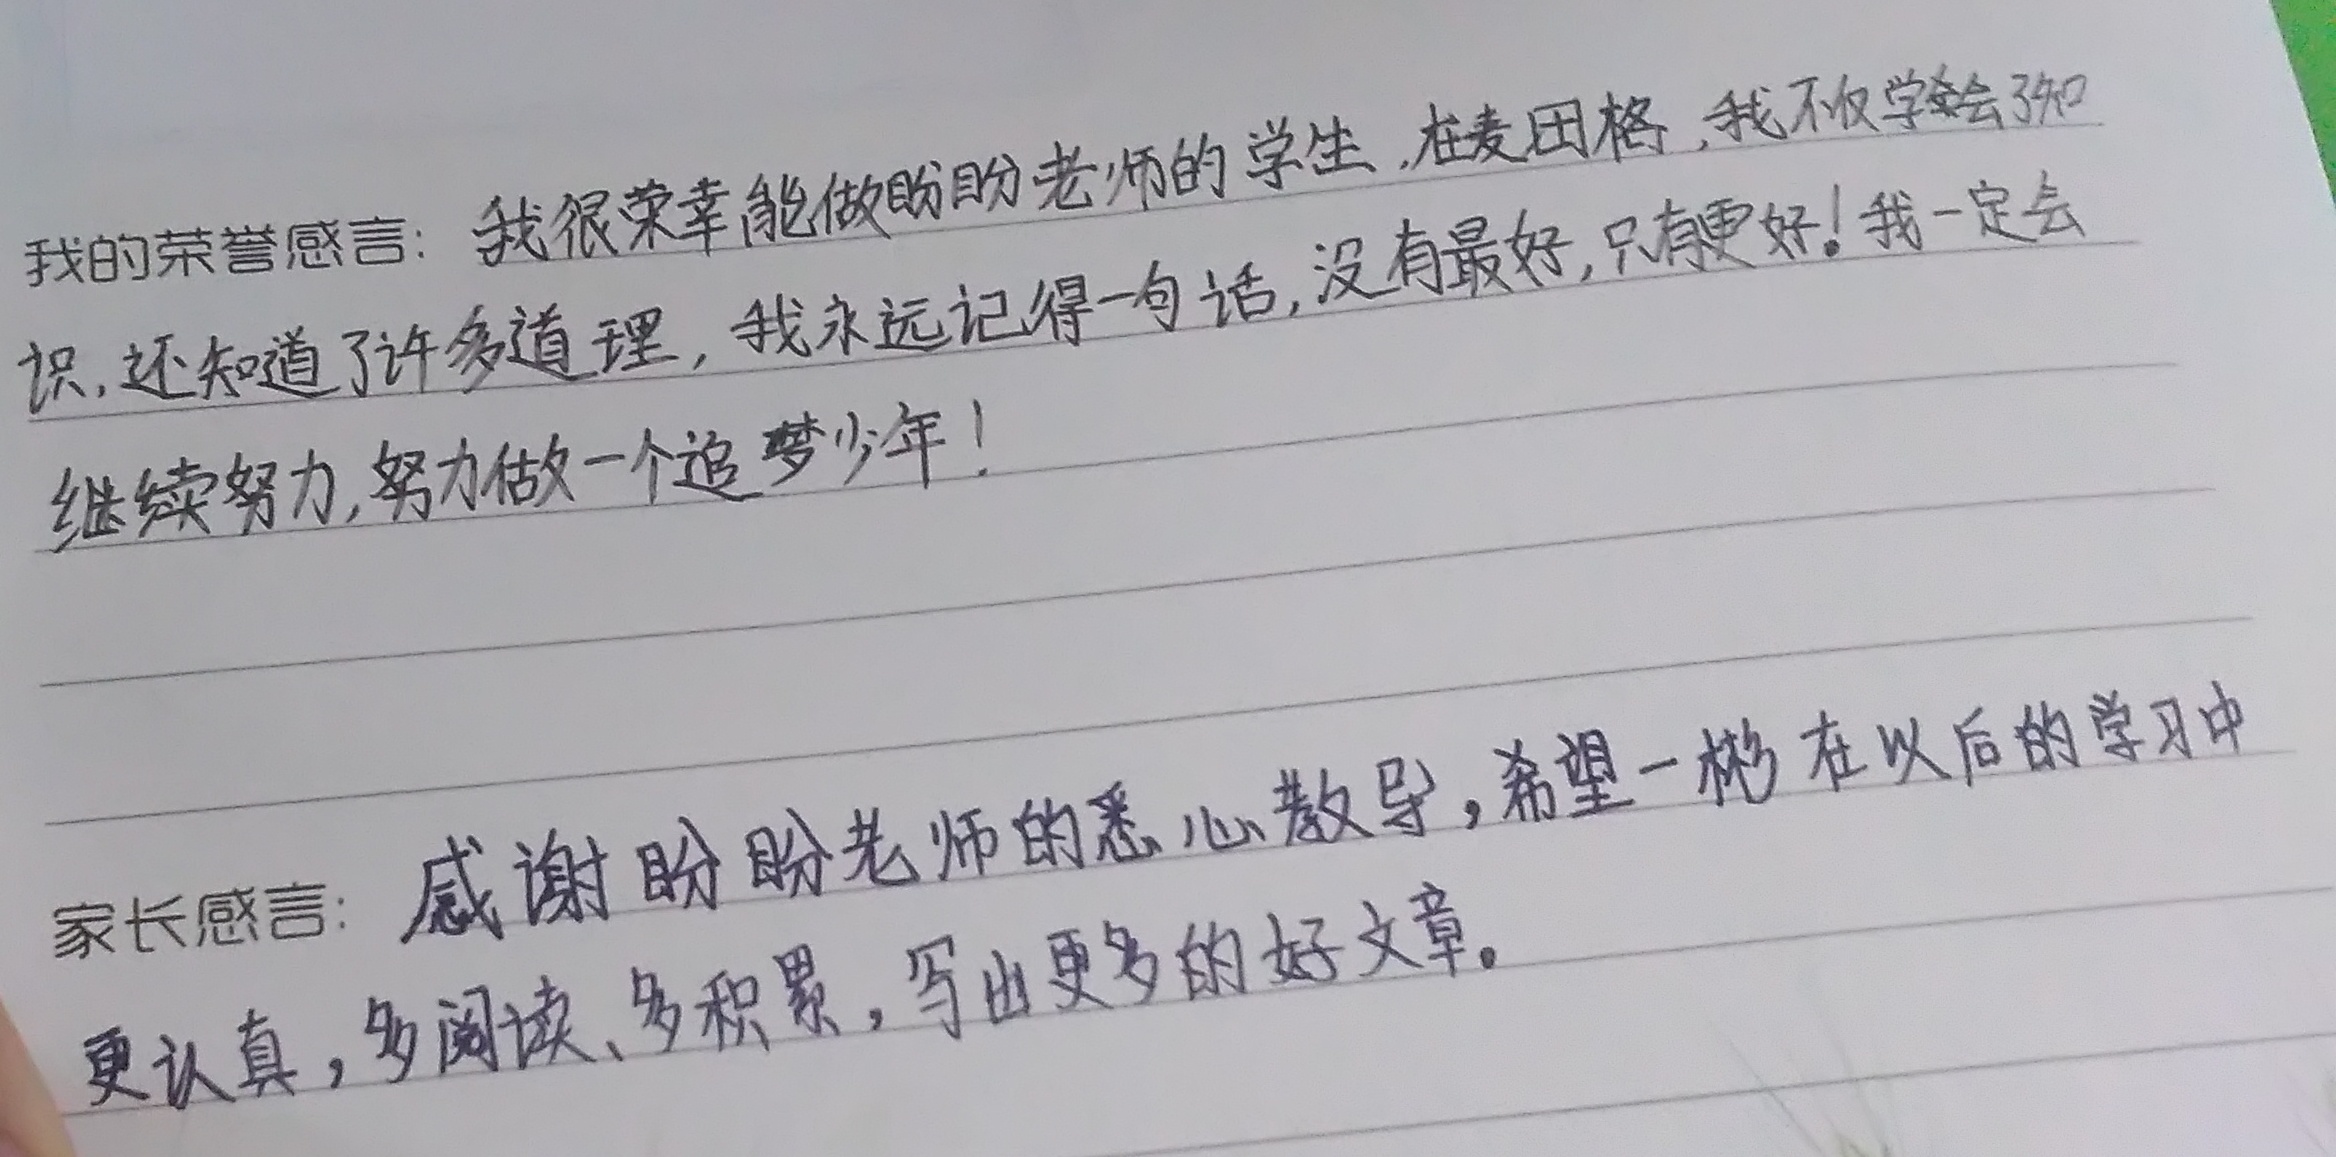 我的荣誉感言：我很荣幸能做盼盼老师的学生，在麦田格，我不仅学会了知
识，还知道了许多道理，我永远记得一句话，没有最好，只有更好！我一定会
继续努力，努力做一个追梦少年！
家长感言：感谢盼盼老师的悉心教导，希望一彬在以后的学习中
更认真，多阅读、多积累，写出更多的好文章。